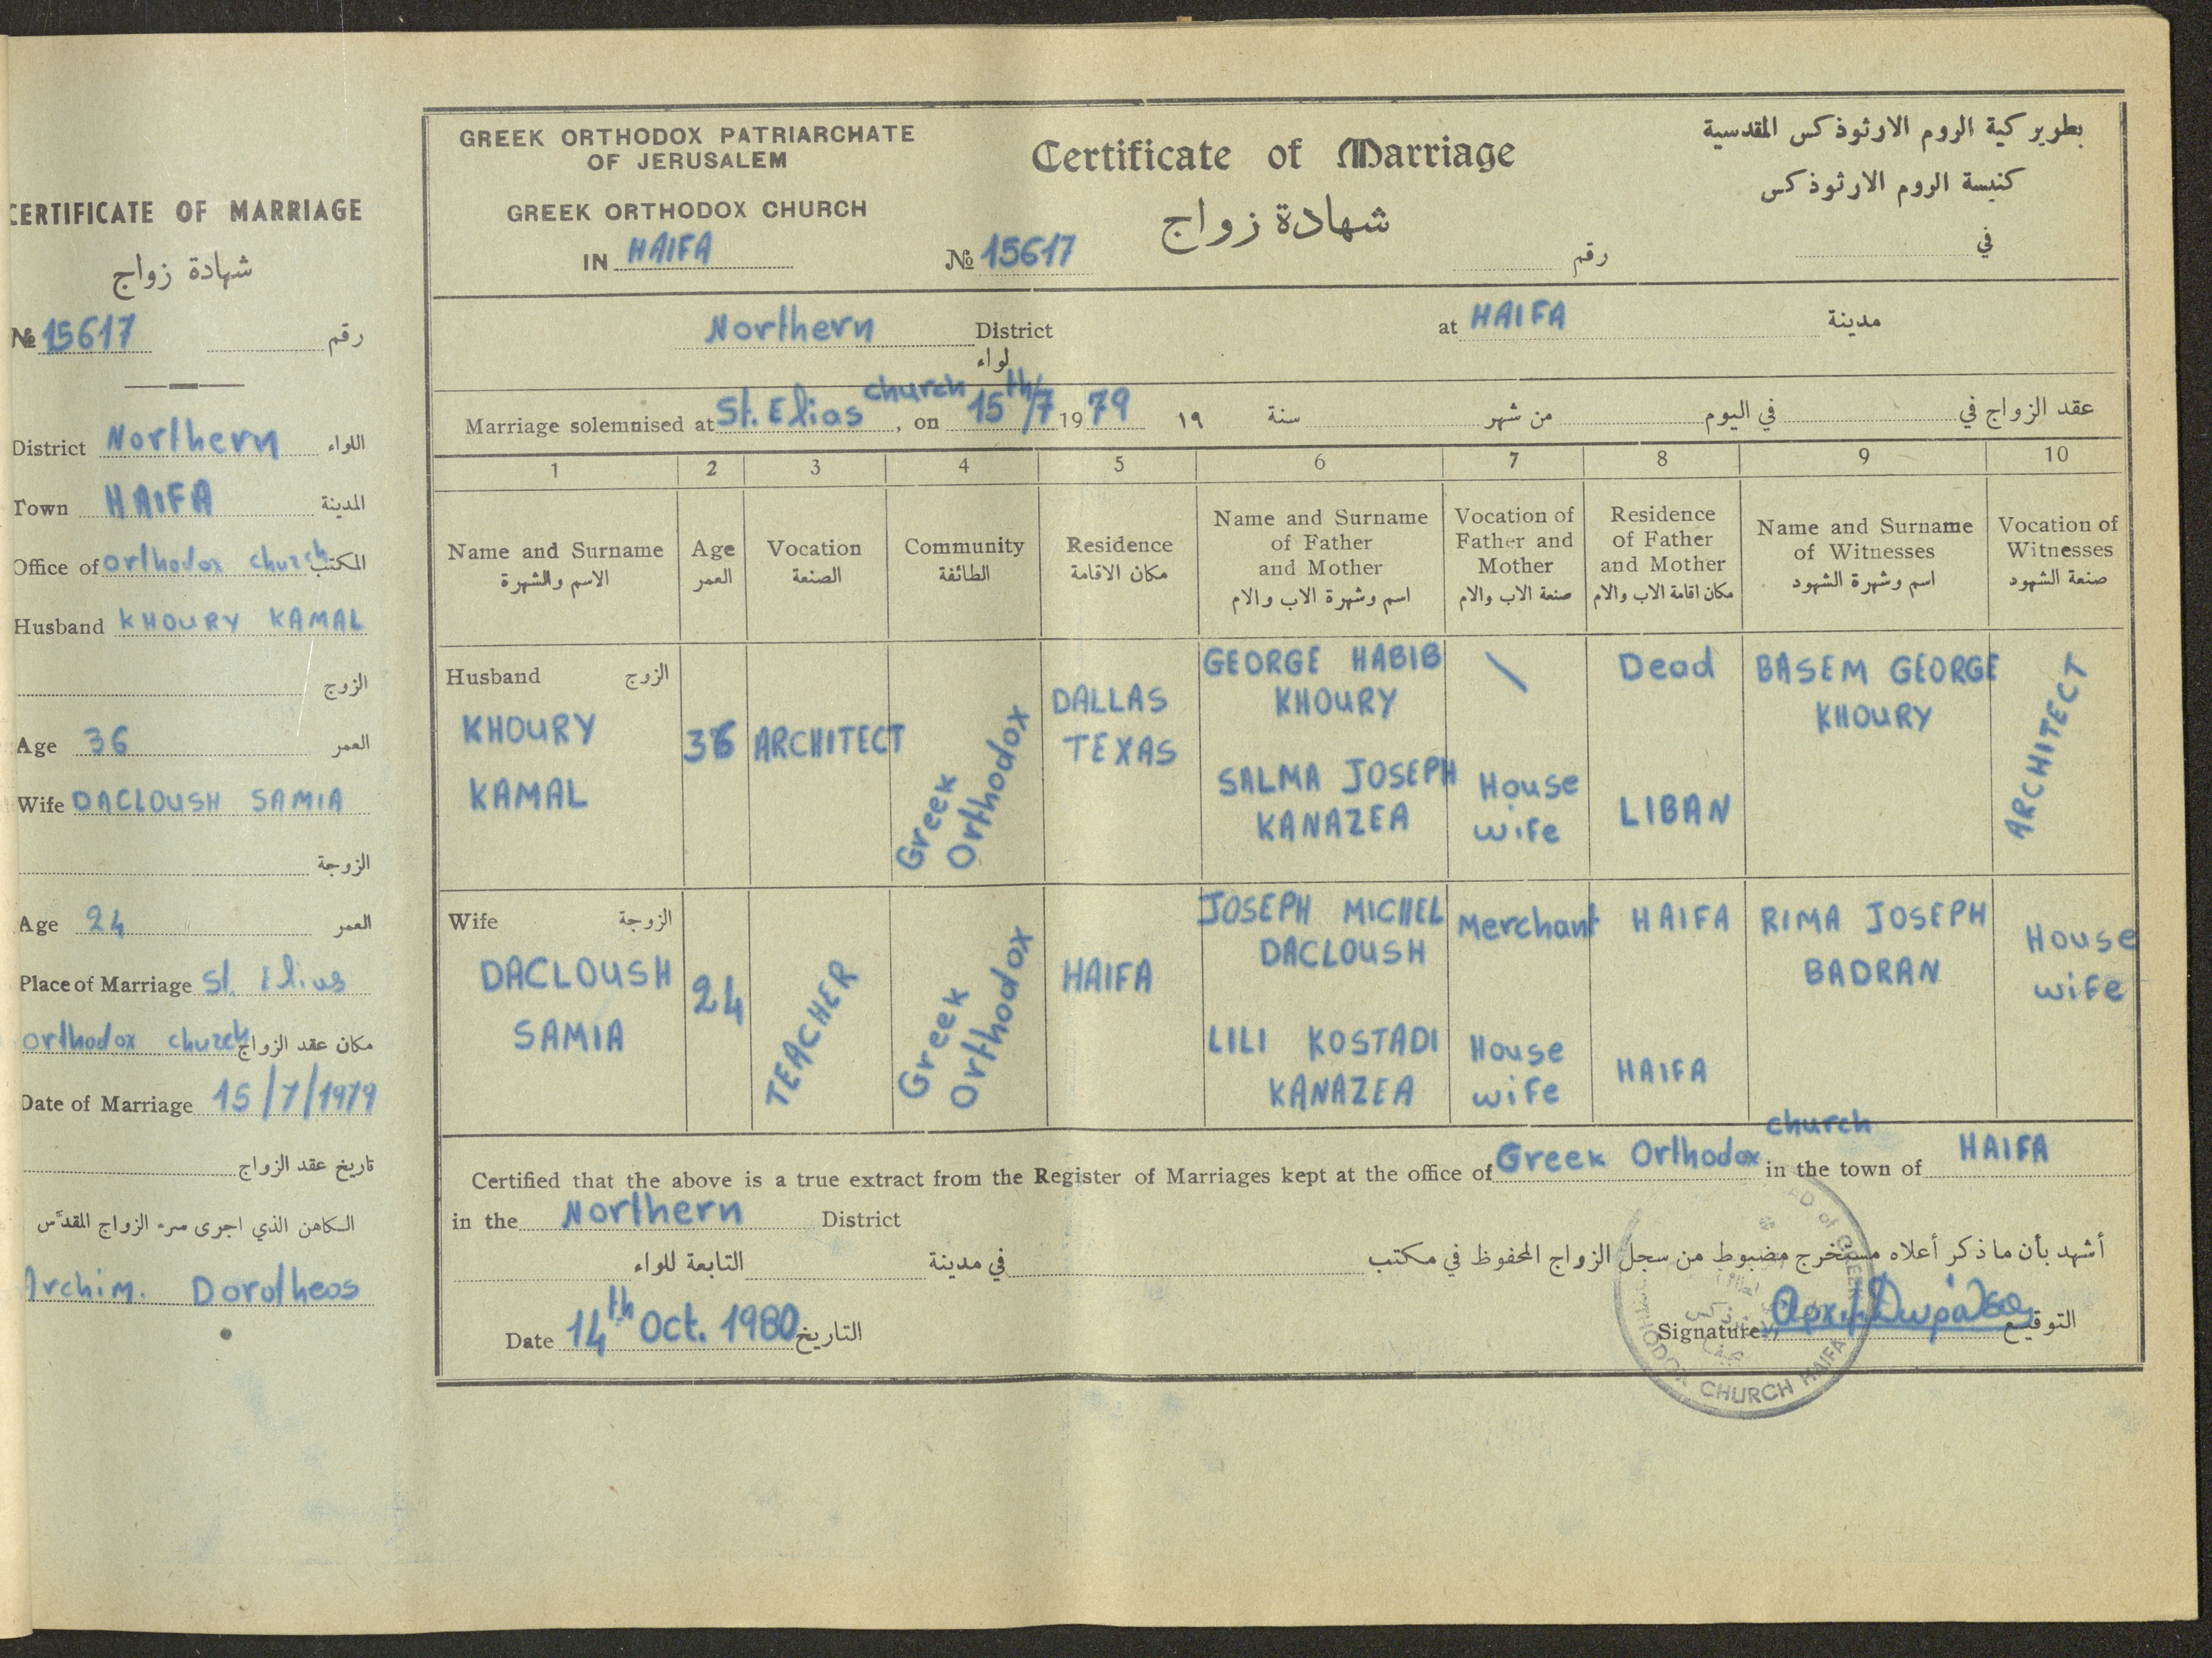 CERTIFICATE OF MARRIAGE
شهادة زواج
№ 15617 رقم
District Northern اللواء
Town HAIFA المدينة
Office of orthodox church المكتب
Husband KHOURY KAMAL
الزوج
Age 36 العمر
Wife DACLOUSH SAMIA
الزوجة
Age 24 العمر
Place of Marriage St. Elias
orthodox church مكان عقد الزواج
Date of Marriage 15/7/1979
تاريخ عقد الزواج
الكاهن الذي اجرى سر الزواج المقدّس
Archim. Dorotheos
GREEK ORTHODOX PATRIARCHATE
OF JERUSALEM
GREEK ORTHODOX CHURCH
IN HAIFA
Certificate of Marriage
شهادة زواج
№ 15617
رقم
بطريركية الروم الارثوذكس المقدسية
كنيسة الروم الارثوذكس
في
Northern District
لواء
at HAIFA مدينة
Marriage solemnised at St. Elias church, on 15th/7 1979
عقد الزواج في في اليوم من شهر سنة ١٩
1 2 3 4 5 6 7 8 9 10
Name and Surname
الاسم والشهرة
Age
العمر
Vocation
الصنعة
Community
الطائفة
Residence
مكان الاقامة
Name and Surname
of Father
and Mother
اسم وشهرة الاب والام
Vocation of
Father and
Mother
صنعة الاب والام
Residence
of Father
and Mother
مكان اقامة الاب والام
Name and Surname
of Witnesses
اسم وشهرة الشهود
Vocation of
Witnesses
صنعة الشهود
Husband الزوج
KHOURY
KAMAL
36
ARCHITECT
Greek
Orthodox
DALLAS
TEXAS
GEORGE HABIB
KHOURY
SALMA JOSEPH
KANAZEA
\
House
wife
Dead
LIBAN
BASEM GEORGE
KHOURY
ARCHITECT
Wife الزوجة
DACLOUSH
SAMIA
24
TEACHER
Greek
Orthodox
HAIFA
JOSEPH MICHEL
DACLOUSH
LILI KOSTADI
KANAZEA
Merchant
House
wife
HAIFA
HAIFA
RIMA JOSEPH
BADRAN
House
wife
Certified that the above is a true extract from the Register of Marriages kept at the office of Greek Orthodox church in the town of HAIFA
in the Northern District
أشهد بأن ما ذكر أعلاه مستخرج مضبوط من سجل الزواج المحفوظ في مكتب في مدينة التابعة للواء
Date 14th Oct. 1980 التاريخ
Signature التوقيع
CHURCH HAIFA